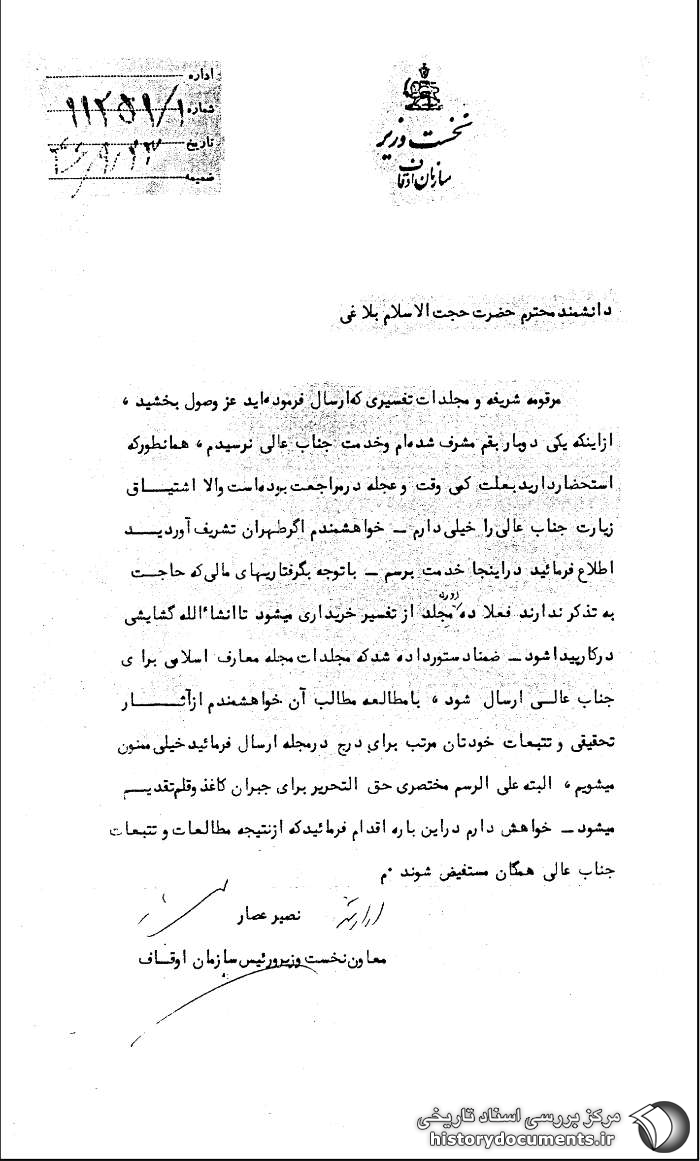 نخست وزیر
سازمان اوقاف
اداره
شماره
تاریخ
ضمیمه
دانشمند محترم حضرت حجت الاسلام بلاغی
مرقومه شریفه و مجلدات تفسیری که ارسال فرموده‌اید عز وصول بخشید ،
ازاینکه یکی دوبار بقم مشرف شده‌ام وخدمت جناب عالی نرسیدم ، همانطورکه
استحضار دارید بعلت کمی وقت وعجله درمراجعت بوده‌است والا اشتیاق
زیارت جناب عالی را خیلی دارم – خواهشمندم اگرطهران تشریف آوردید
اطلاع فرمائید دراینجا خدمت برسم – باتوجه بگرفتاریهای مالی که حاجت
به تذکر ندارند فعلا ده دوره مجلد از تفسیر خریداری میشود تاانشاءالله گشایشی
درکارپیداشود – ضمنادستورداده شدکه مجلدات مجله معارف اسلامی برای
جناب عالی ارسال شود ، بامطالعه مطالب آن خواهشمندم ازآثار
تحقیقی و تتبعات خودتان مرتب برای درج درمجله ارسال فرمائیدخیلی ممنون
میشویم ، البته علی الرسم مختصری حق التحریر برای جبران کاغذ وقلم تقدیم
میشود – خواهش دارم دراین باره اقدام فرمائیدکه ازنتیجه مطالعات و تتبعات
جناب عالی همگان مستفیض شوند .م
نصیر عصار
معاون نخست وزیرورئیس سازمان اوقاف
مرکز بررسی اسناد تاریخی
historydocuments.ir